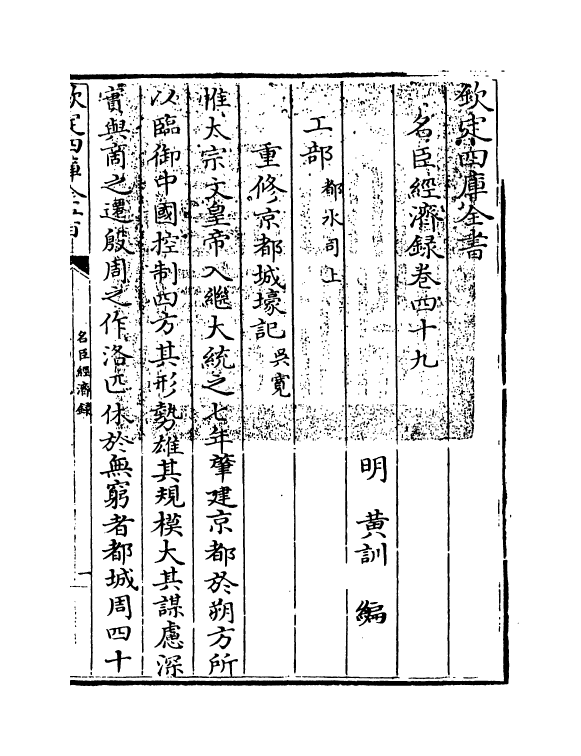 欽定四庫全書
名臣經濟録卷四十九
明 黄訓 編
工部 都水司上
重修京都城壕記 吳寛
惟太宗文皇帝入繼大統之七年肇建京都於朔方所
以臨御中國控制四方其形勢雄其規模大其謀慮深
實與商之遷殷周之作洛匹休於無窮者都城周四十
欽定四庫全書
名臣經濟録
一